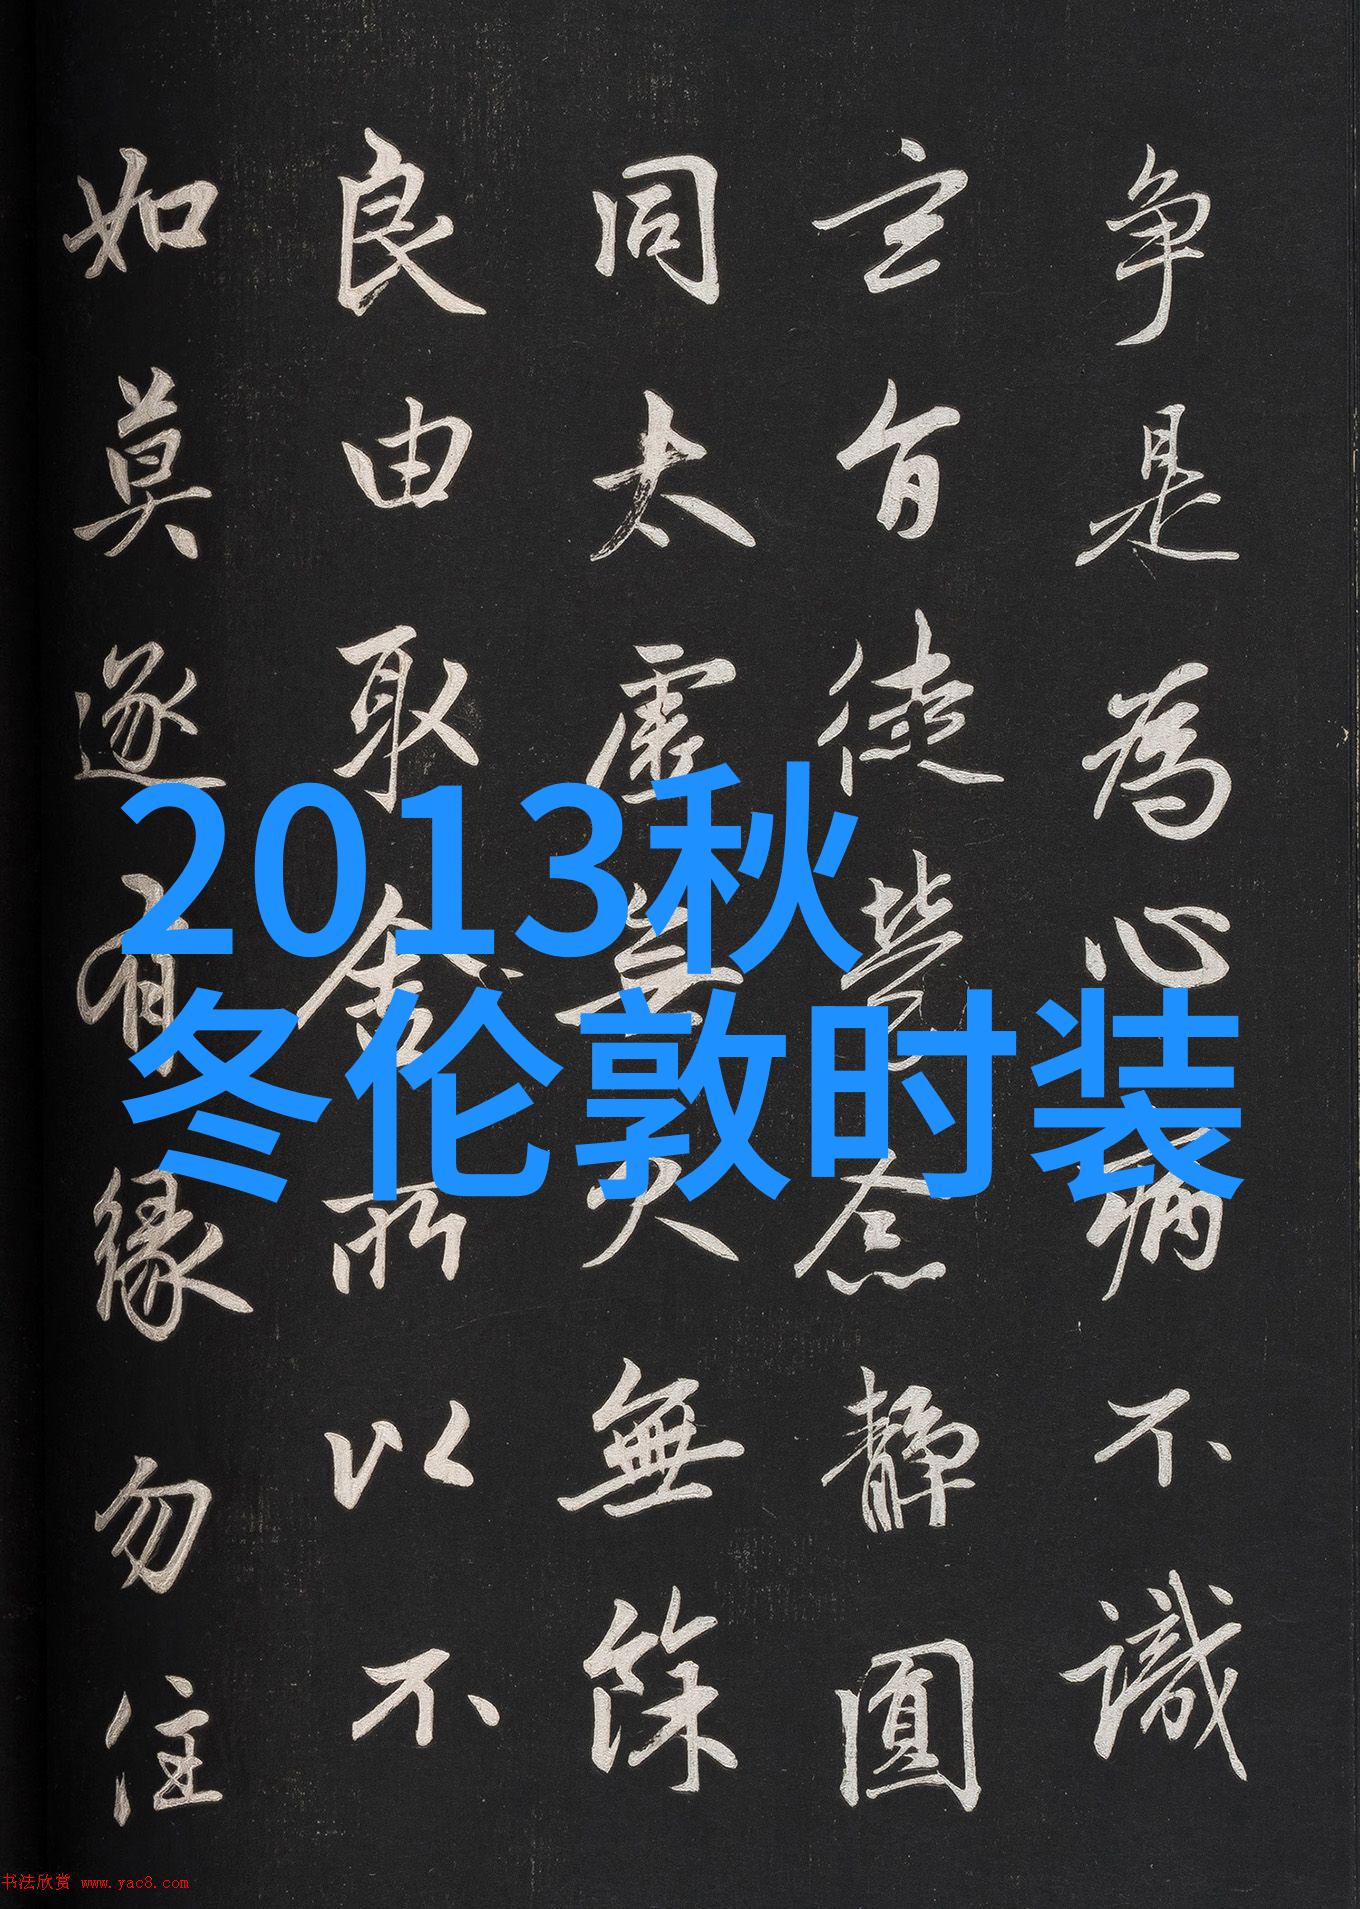 争是為心病不識
玄旨徒勞念静圓
同太虚無欠無餘
良由取舍所以不
如莫逐有緣勿住
2013秋
冬伦敦时装
书法欣赏 www.yac8.com